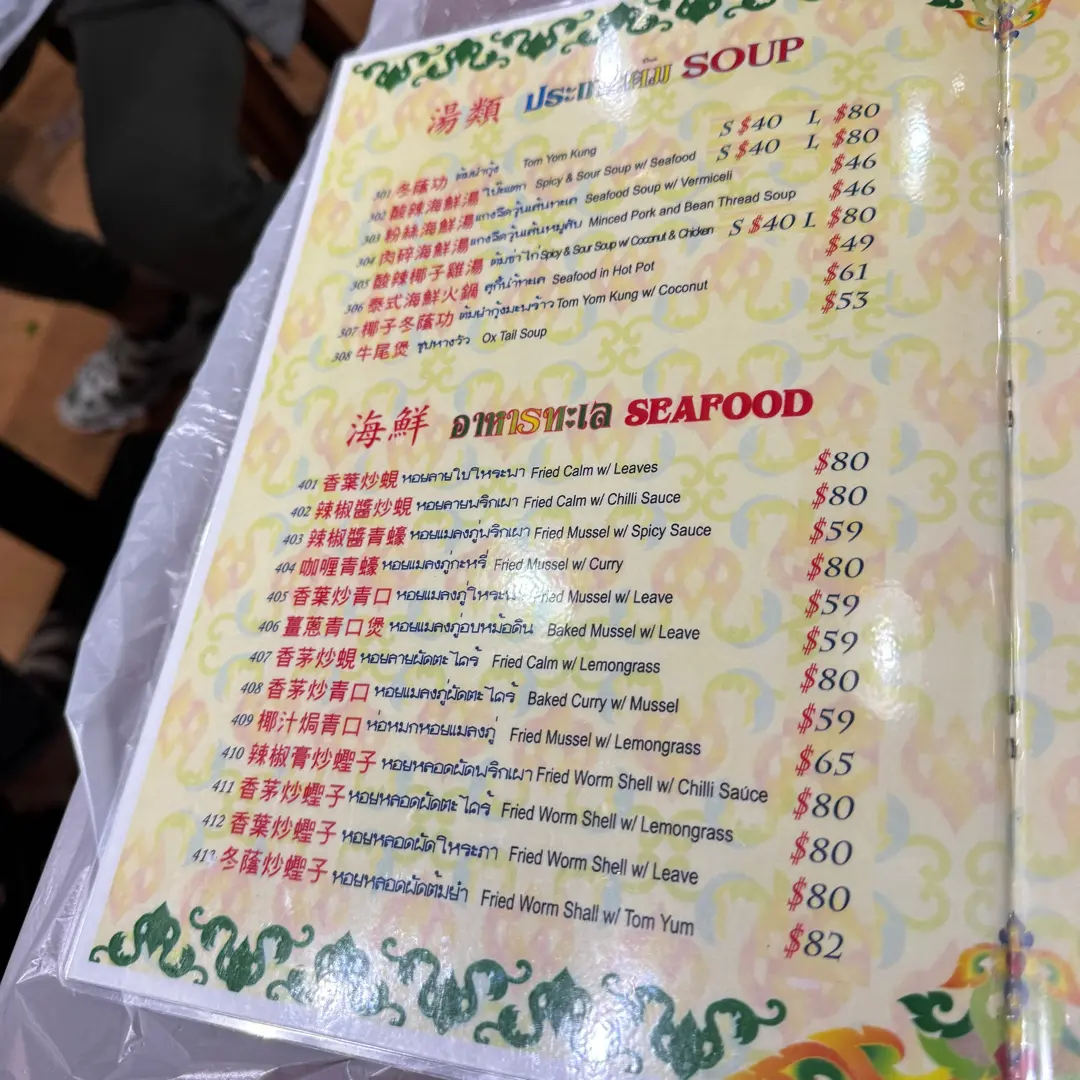 湯類 SOUP
301 冬蔭功 ต้มยำกุ้ง Tom Yom Kung S $40 L $80
302 酸辣海鮮湯 โป๊ะแตก Spicy & Sour Soup w/ Seafood S $40 L $80
303 粉絲海鮮湯 แกงจืดวุ้นเส้นทะเล Seafood Soup w/ Vermiceli $46
304 肉碎海鮮湯 แกงจืดวุ้นเส้นหมูสับ Minced Pork and Bean Thread Soup $46
305 酸辣椰子雞湯 ต้มข่าไก่ Spicy & Sour Soup w/ Coconut & Chicken S $40 L $80
306 泰式海鮮火鍋 สุกี้น้ำทะเล Seafood in Hot Pot $49
307 椰子冬蔭功 ต้มยำกุ้งมะพร้าว Tom Yom Kung w/ Coconut $61
308 牛尾煲 ซุบหางวัว Ox Tail Soup $53
海鮮 อาหารทะเล SEAFOOD
401 香葉炒蜆 หอยลายใบโหระพา Fried Calm w/ Leaves $80
402 辣椒醬炒蜆 หอยลายพริกเผา Fried Calm w/ Chilli Sauce $80
403 辣椒醬青蠔 หอยแมลงภู่พริกเผา Fried Mussel w/ Spicy Sauce $59
404 咖喱青蠔 หอยแมลงภู่กะหรี่ Fried Mussel w/ Curry $80
405 香葉炒青口 Fried Mussel w/ Leave $59
406 薑蔥青口煲 หอยแมลงภู่อบหม้อดิน Baked Mussel w/ Leave $59
407 香茅炒蜆 หอยลายผัดตะไคร้ Fried Calm w/ Lemongrass $80
408 香茅炒青口 หอยแมลงภู่ผัดตะไคร้ Baked Curry w/ Mussel $59
409 椰汁焗青口 ห่อหมกหอยแมลงภู่ Fried Mussel w/ Lemongrass $65
410 辣椒膏炒蟶子 หอยหลอดผัดพริกเผา Fried Worm Shell w/ Chilli Sauce $80
411 香茅炒蟶子 หอยหลอดผัดตะไคร้ Fried Worm Shell w/ Lemongrass $80
412 香葉炒蟶子 หอยหลอดผัดโหระภา Fried Worm Shell w/ Leave $80
413 冬蔭炒蟶子 หอยหลอดผัดต้มยำ Fried Worm Shall w/ Tom Yum $82